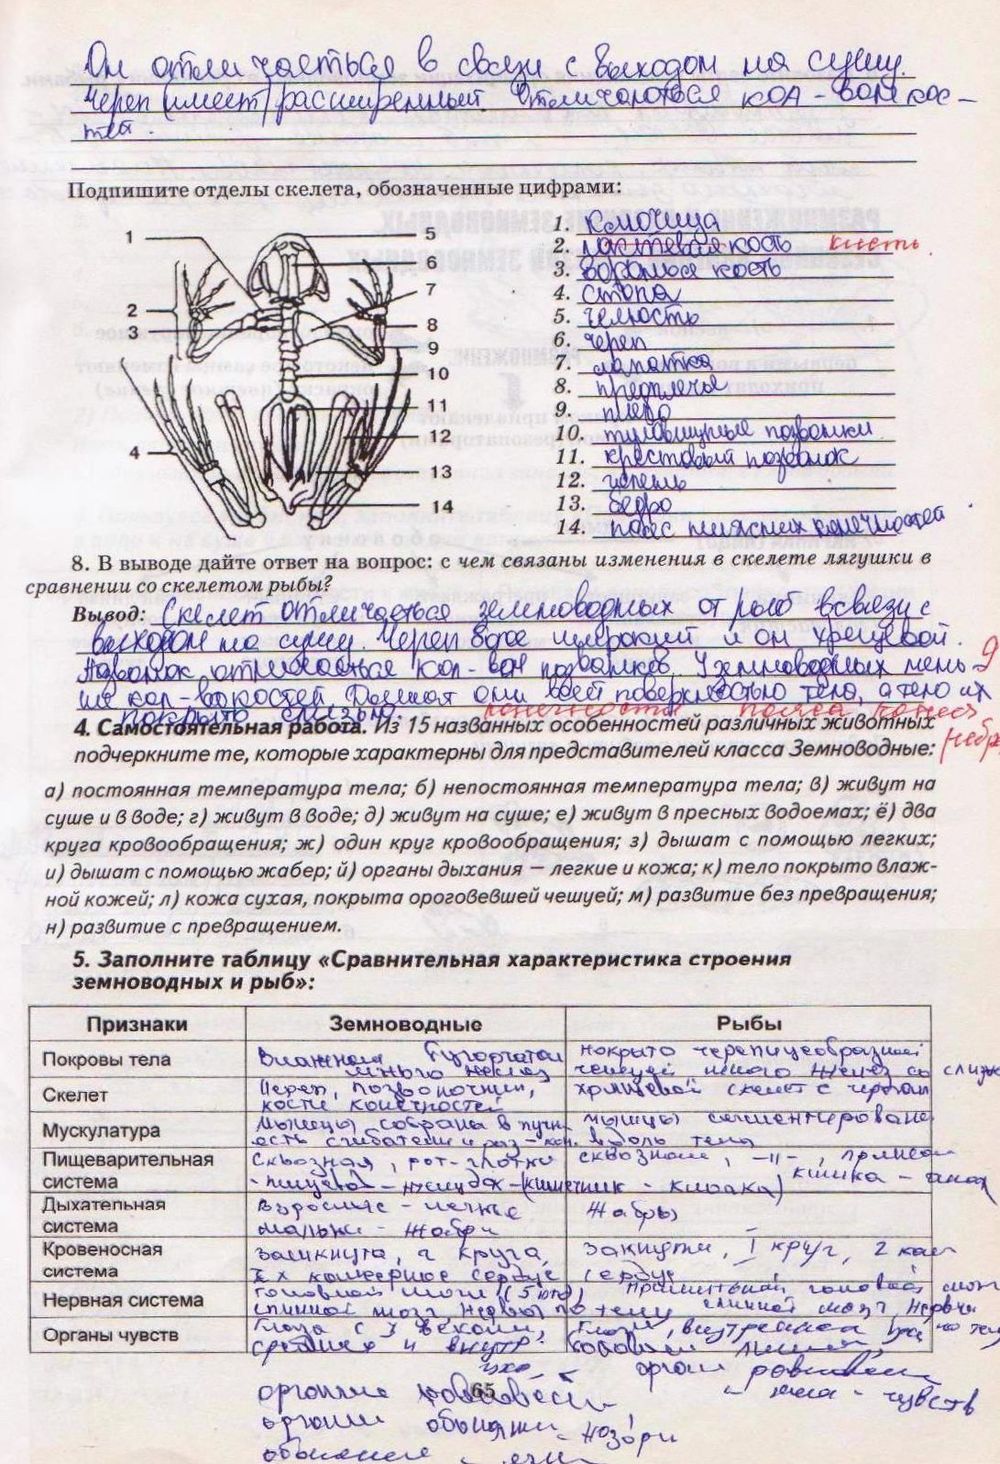 Он отличаеться в связи с выходом на сушу.
Череп (имеет) расширенный. Отличаються кол-вом кос-
тей.
Подпишите отделы скелета, обозначенные цифрами:
1
2
3
4
5
6
7
8
9
10
11
12
13
14
1. Ключица
2. локтевая кость кисть.
3. воронья кость
4. стопа
5. челюсть
6. череп
7. лопатка
8. предплечье
9. плечо
10. туловищные позвонки
11. крестовый позвонок
12. голень
13. бедро
14. пояс конечностей
8. В выводе дайте ответ на вопрос: с чем связаны изменения в скелете лягушки в
сравнении со скелетом рыбы?
Вывод: Скелет отличаеться земноводных от рыб в связи с
выходом на сушу. Череп более широкий и он хрящевой.
Позвонок отличаеться кол-вом позвонков. У земноводных мень-
ше кол-во костей. Дышат они всей поверхностью тела, а тело их
покрыто слизью. конечности пояса конеч
4. Самостоятельная работа. Из 15 названных особенностей различных животных
подчеркните те, которые характерны для представителей класса Земноводные:
а) постоянная температура тела; б) непостоянная температура тела; в) живут на
суше и в воде; г) живут в воде; д) живут на суше; е) живут в пресных водоемах; ё) два
круга кровообращения; ж) один круг кровообращения; з) дышат с помощью легких;
и) дышат с помощью жабер; й) органы дыхания — легкие и кожа; к) тело покрыто влаж-
ной кожей; л) кожа сухая, покрыта ороговевшей чешуей; м) развитие без превращения;
н) развитие с превращением.
5. Заполните таблицу «Сравнительная характеристика строения
земноводных и рыб»:
Признаки Земноводные Рыбы
Покровы тела
много желез
покрыто черепицеобразной
чешуей много желез со слизью
Скелет
Череп, позвоночник,
кости конечностей
хрящевой скелет с черепом
Мускулатура
Мышцы собраны в пучки
есть сгибатели и раз-
мышцы сегментированы
вдоль тела
Пищеварительная
система
Сквозная, рот-глотка
-пищевод-желудок-(кишечник-клоака)
сквозная, -"-,
кишка - анал
Дыхательная
система
Взрослые - легкие
мальки - жабры
Жабры
Кровеносная
система
Замкнута, 2 круга,
3х камерное сердце
замкнута, 1 круг, 2 кам
сердце
Нервная система
головной мозг (5 отд)
спинной мозг нервы по телу
головной мозг
спинной мозг нервы
по телу
Органы чувств
Глаза с 3 веками,
среднее и внутр.
ухо
глаза, внутреннее ухо
боковая линия,
орган равновесия
65
органы равновесия
органы обоняния - ноздри
обоняние